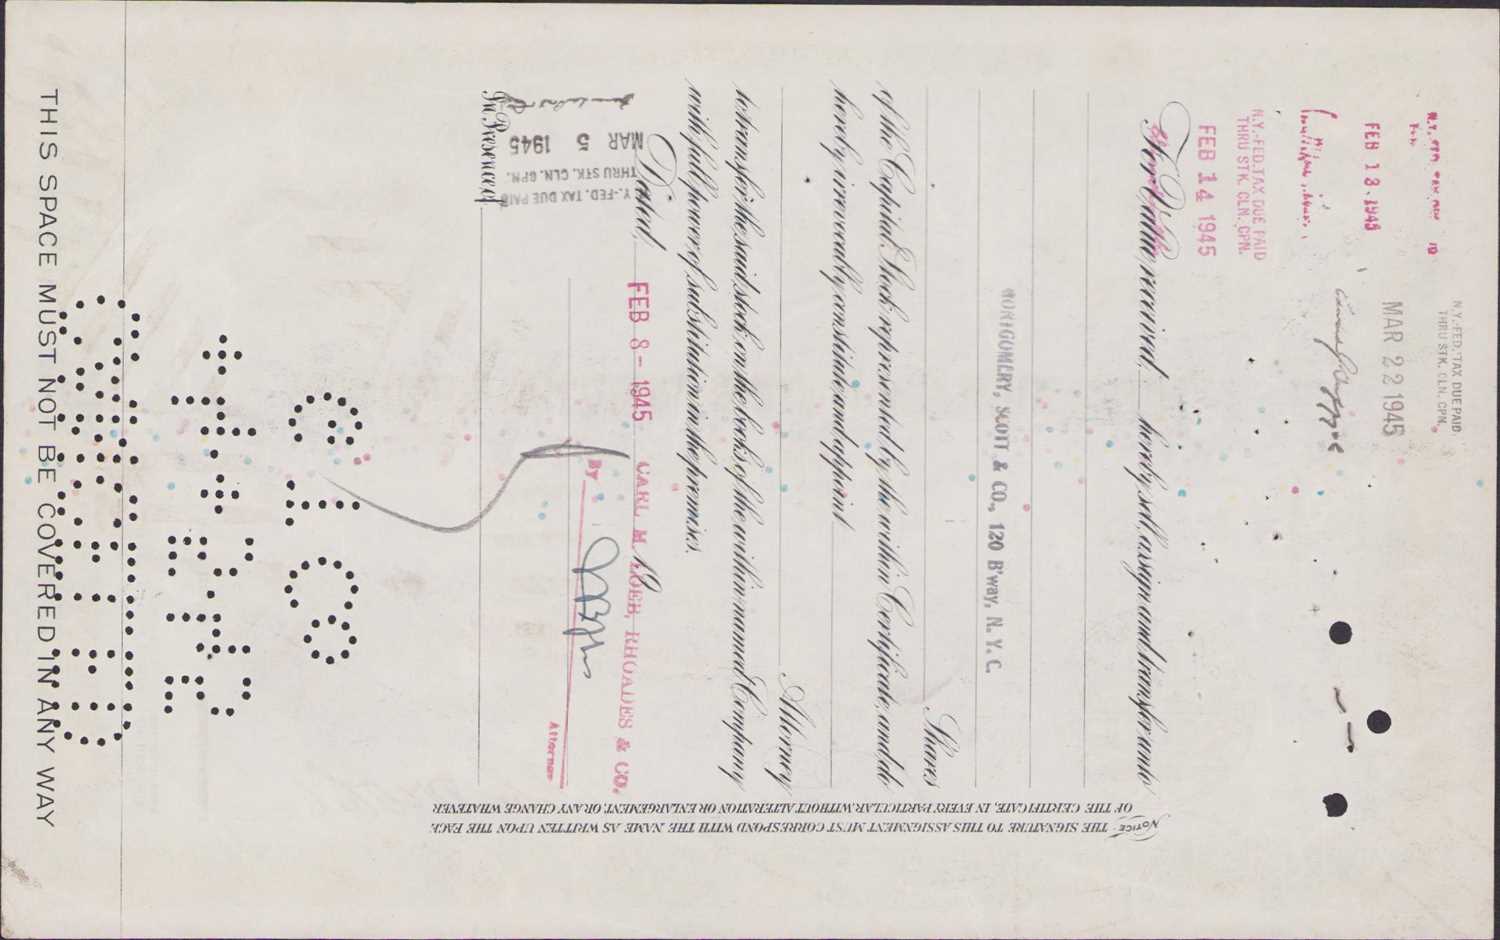 N.Y.-FED. TAX DUE PAID
THRU STK. CLN. CPN.
MAR 22 1945
FEB 13 1945
N.Y.-FED. TAX DUE PAID
THRU STK. CLN. CPN.
FEB 14 1945
For Value received, hereby sell, assign and transfer unto
MONTGOMERY, SCOTT & CO., 120 B'way, N. Y. C.
Shares
of the Capital Stock represented by the within Certificate, and do
hereby irrevocably constitute and appoint
Attorney
to transfer the said stock on the books of the within named Company
with full power of substitution in the premises.
Dated, 19
FEB 8 - 1945 CARL M. LOEB, RHOADES & CO.
By
Attorney
Y.-FED. TAX DUE PAID
THRU STK. CLN. CPN.
MAR 5 1945
In Presence of
NOTICE: THE SIGNATURE TO THIS ASSIGNMENT MUST CORRESPOND WITH THE NAME AS WRITTEN UPON THE FACE
OF THE CERTIFICATE, IN EVERY PARTICULAR, WITHOUT ALTERATION OR ENLARGEMENT, OR ANY CHANGE WHATEVER
THIS SPACE MUST NOT BE COVERED IN ANY WAY